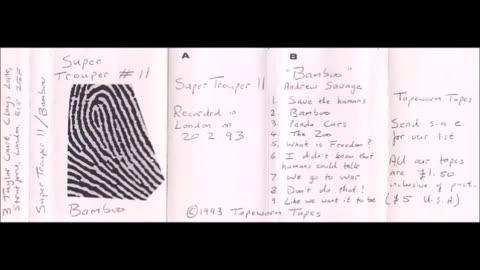 3 Taylor Court, Clays Lane,
Stratford, London, E15 2
Super Trouper 11 / Bamboo
Super
Trouper #11
Bamboo
A
Super Trouper 11
Recorded in
London on
20.2.93
©1993 Tapeworm Tapes
B
"Bamboo"
Andrew Savage
1. Save the humans
2. Bamboo
3. Panda Cars
4. The Zoo
5. What is Freedom?
6. I didn't know that
humans could talk
7. We go to war
8. Don't do that!
9. Like we want it to be
Tapeworm Tapes
Send s.a.e.
for our list
All our tapes
are £1.50
inclusive of post.
($5 U.S.A.)